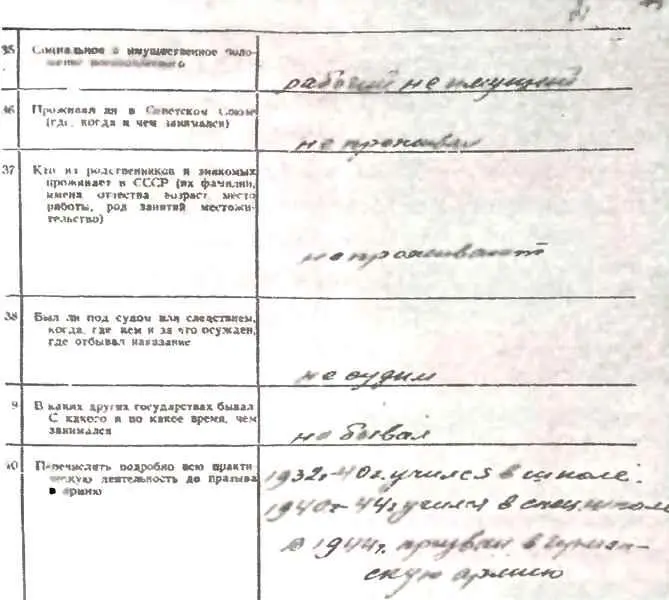 35 Социальное и имущественное поло-
жение военнопленного
рабочий не имущий
36 Проживал ли в Советском Союзе
(где, когда и чем занимался)
не проживал
37 Кто из родственников и знакомых
проживает в СССР (их фамилии,
имена отчества возраст место
работы, род занятий местожи-
тельство)
не проживают
38 Был ли под судом или следствием,
когда, где кем и за что осужден,
где отбывал наказание
не судим
9 В каких других государствах бывал
С какого и по какое время, чем
занимался
не бывал
40 Перечислить подробно всю практи-
ческую деятельность до призыва
в армию
1932г-40г. учился в школе.
1940г-44г учился в спец. школе
В 1944г. призван в герман-
скую армию